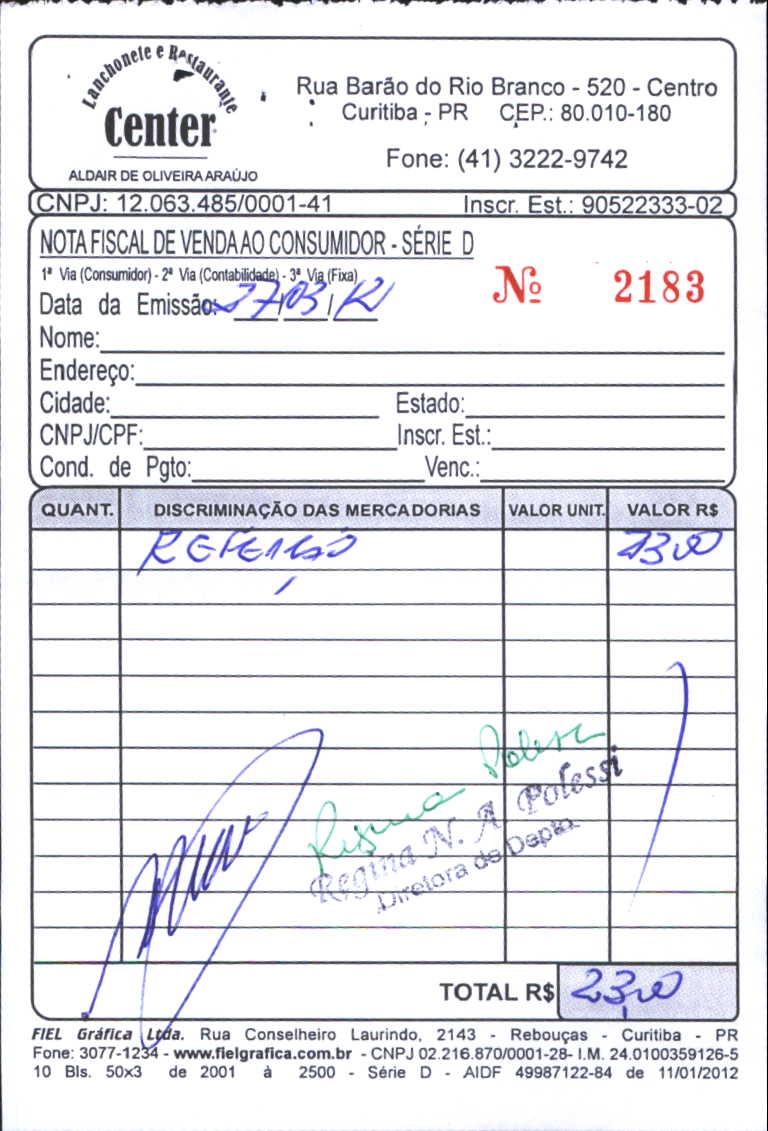 Lanchonete e Restaurante
Center
ALDAIR DE OLIVEIRA ARAÚJO
Rua Barão do Rio Branco - 520 - Centro
Curitiba - PR CEP.: 80.010-180
Fone: (41) 3222-9742
CNPJ: 12.063.485/0001-41 Inscr. Est.: 90522333-02
NOTA FISCAL DE VENDA AO CONSUMIDOR - SÉRIE D
1ª Via (Consumidor) - 2ª Via (Contabilidade) - 3ª Via (Fixa)
Nº 2183
Data da Emissão: 27/03/12
Nome:
Endereço:
Cidade: Estado:
CNPJ/CPF: Inscr. Est.:
Cond. de Pgto: Venc.:
QUANT. DISCRIMINAÇÃO DAS MERCADORIAS VALOR UNIT. VALOR R$
REFEIÇÃO 23,00
Regina Polessi
Regina N. A. Polessi
Diretora de Depto.
TOTAL R$ 23,00
FIEL Gráfica Ltda. Rua Conselheiro Laurindo, 2143 - Rebouças - Curitiba - PR
Fone: 3077-1234 - www.fielgrafica.com.br - CNPJ 02.216.870/0001-28- I.M. 24.0100359126-5
10 Bls. 50x3 de 2001 à 2500 - Série D - AIDF 49987122-84 de 11/01/2012